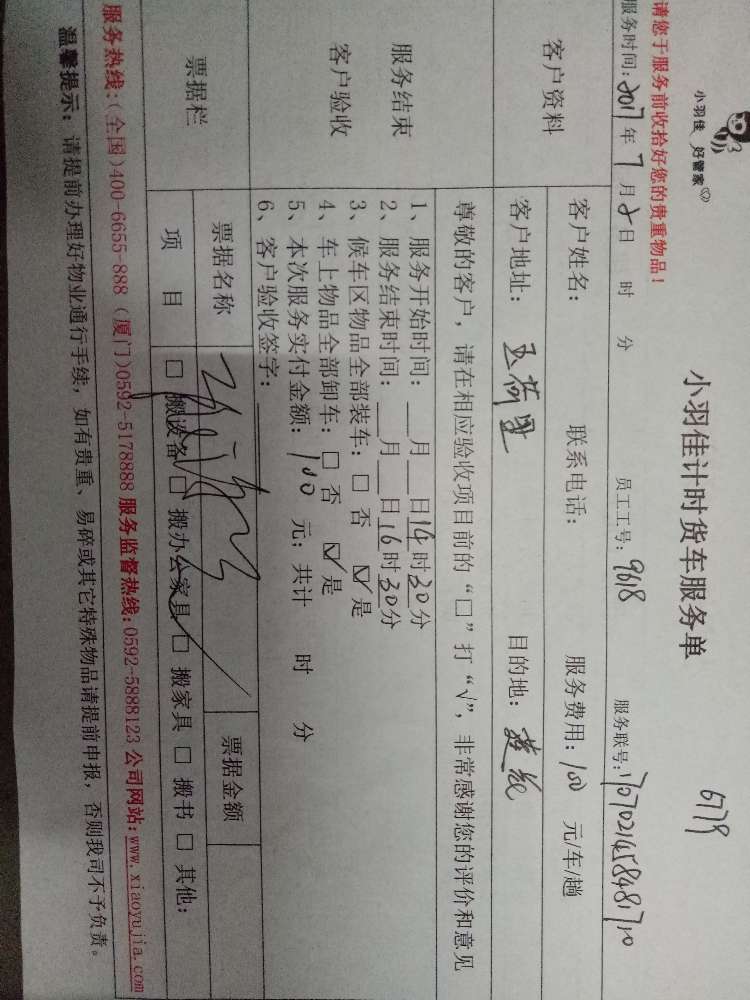 小羽佳 好管家
小羽佳计时货车服务单
6779
请您于服务前收拾好您的贵重物品！
服务时间：2017年7月2日 时 分 员工工号：9618 服务联号：
客户资料
客户姓名： 联系电话： 服务费用：100 元/车/趟
客户地址： 目的地：
服务结束
客户验收
尊敬的客户，请在相应验收项目前的“□”打“√”，非常感谢您的评价和意见
1、服务开始时间：___月___日14时20分
2、服务结束时间：___月___日16时30分
3、候车区物品全部装车：□ 否 ☑ 是
4、车上物品全部卸车：□ 否 ☑ 是
5、本次服务实付金额：100 元；共计 时 分
6、客户验收签字：
票据栏
票据名称 票据金额
项 目 □ 搬设备 □ 搬办公家具 □ 搬家具 □ 搬书 □ 其他：
服务热线：(全国)400-6655-888 (厦门)0592-5178888 服务监督热线：0592-5888123 公司网站：www.xiaoyujia.com
温馨提示：请提前办理好物业通行手续，如有贵重、易碎或其它特殊物品请提前申报，否则我司不予负责。